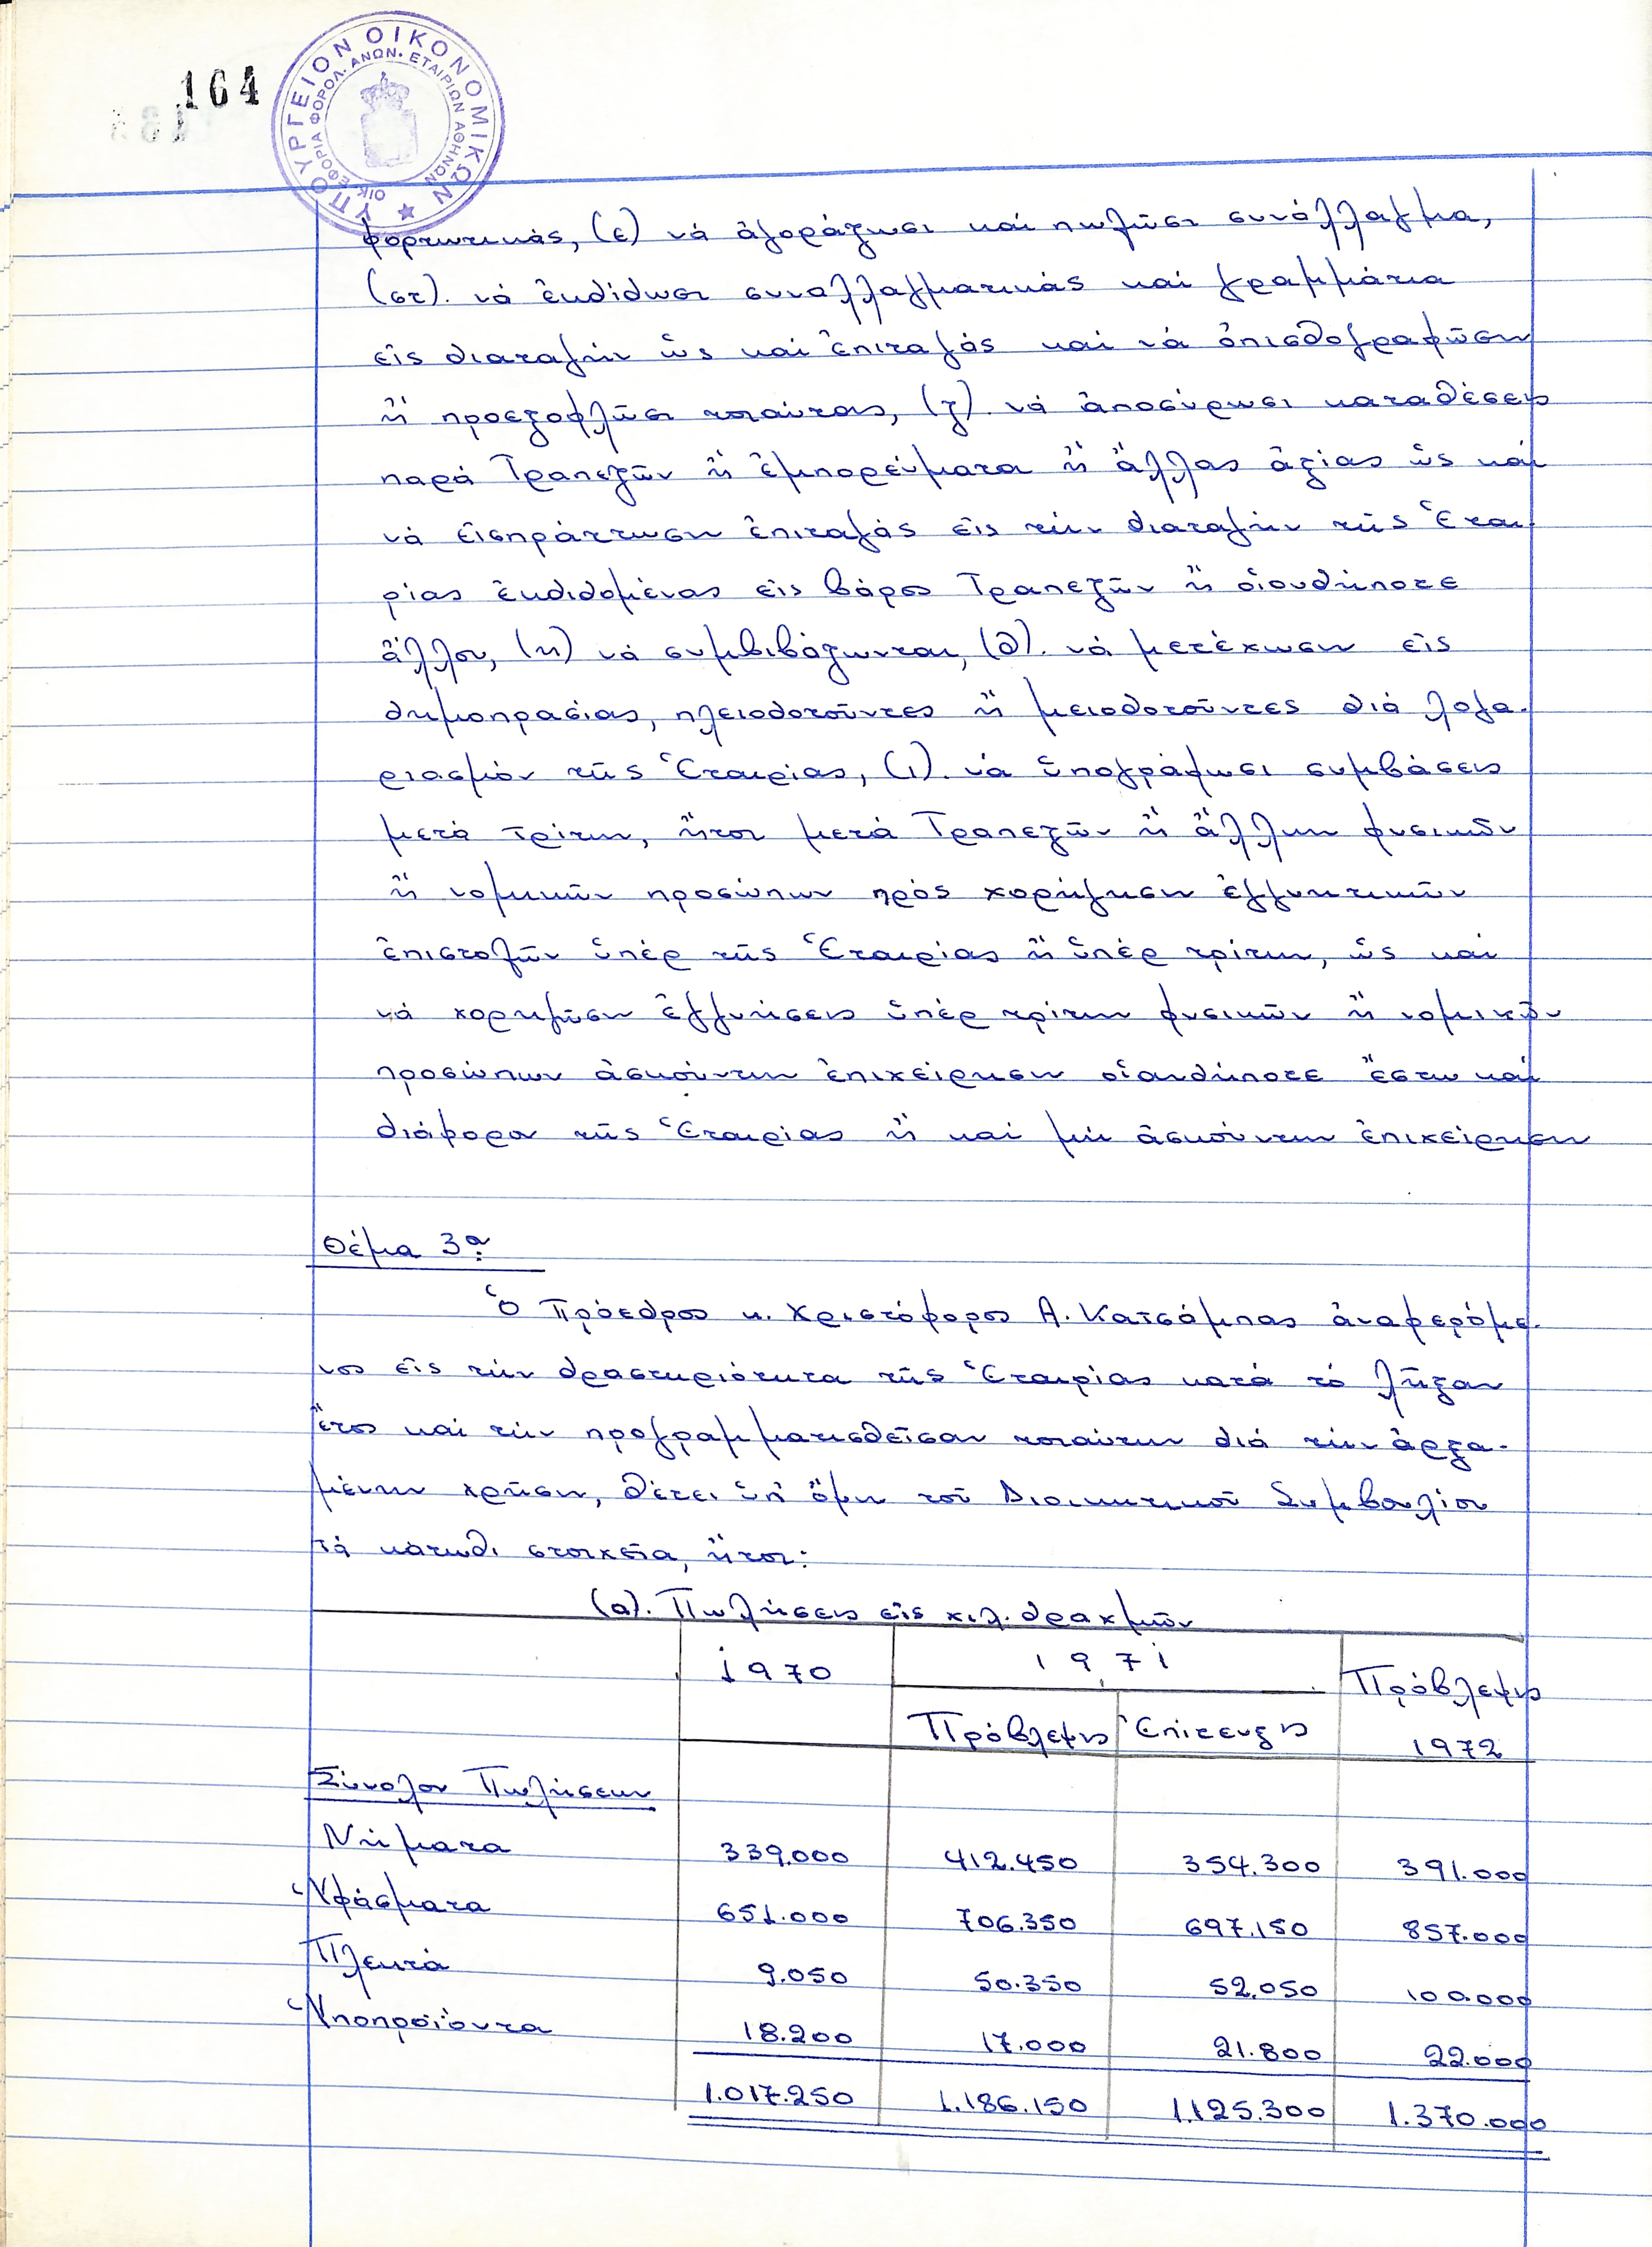 164
ΥΠΟΥΡΓΕΙΟΝ ΟΙΚΟΝΟΜΙΚΩΝ
ΟΙΚ. ΕΦΟΡΙΑ ΦΟΡΟΛ. ΑΝΩΝ. ΕΤΑΙΡΙΩΝ ΑΘΗΝΩΝ
φορτωτικάς, (ε) νά ἀγοράζωσι καί πωλῶσι συνάλλαγμα,
(στ). νά ἐκδίδωσι συναλλαγματικάς καί γραμμάτια
εἰς διαταγήν ὡς καί ἐπιταγάς καί νά ὀπισθογραφῶσιν
ἤ προεξοφλῶσι τοιαύτας, (ζ). νά ἀποσύρωσι καταθέσεις
παρά Τραπεζῶν ἤ ἐμπορεύματα ἤ ἄλλας ἀξίας ὡς καί
νά εἰσπράττωσιν ἐπιταγάς εἰς τήν διαταγήν τῆς Ἑται-
ρίας ἐκδιδομένας εἰς βάρος Τραπεζῶν ἤ οἱουδήποτε
ἄλλου, (η) νά συμβιβάζωνται, (θ). νά μετέχωσιν εἰς
δημοπρασίας, πλειοδοτοῦντες ἤ μειοδοτοῦντες διά λογα-
ριασμόν τῆς Ἑταιρίας, (ι). νά ὑπογράφωσι συμβάσεις
μετά τρίτων, ἤτοι μετά Τραπεζῶν ἤ ἄλλων φυσικῶν
ἤ νομικῶν προσώπων πρός χορήγησιν ἐγγυητικῶν
ἐπιστολῶν ὑπέρ τῆς Ἑταιρίας ἤ ὑπέρ τρίτων, ὡς καί
νά χορηγῶσιν ἐγγυήσεις ὑπέρ τρίτων φυσικῶν ἤ νομικῶν
προσώπων ἀσκούντων ἐπιχείρησιν οἱανδήποτε ἔστω καί
διάφορον τῆς Ἑταιρίας ἤ καί μή ἀσκούντων ἐπιχείρησιν
Θέμα 3ον
Ὁ Πρόεδρος κ. Χριστόφορος Α. Κατσάμπας ἀναφερόμε-
νος εἰς τήν δραστηριότητα τῆς Ἑταιρίας κατά τό λῆξαν
ἔτος καί τήν προγραμματισθεῖσαν τοιαύτην διά τήν ἀρξα-
μένην χρῆσιν, θέτει ὑπ' ὄψιν τοῦ Διοικητικοῦ Συμβουλίου
τά κάτωθι στοιχεῖα, ἤτοι:
(α). Πωλήσεις εἰς χιλ. δραχμῶν
1970 1971 Πρόβλεψις
Πρόβλεψις Ἐπίτευξις 1972
Σύνολον Πωλήσεων
Νήματα 339.000 412.450 354.300 391.000
Ὑφάσματα 651.000 706.350 697.150 857.000
Πλεκτά 9.050 50.350 52.050 100.000
Ὑποπροϊόντα 18.200 17.000 21.800 22.000
1.017.250 1.186.150 1.125.300 1.370.000